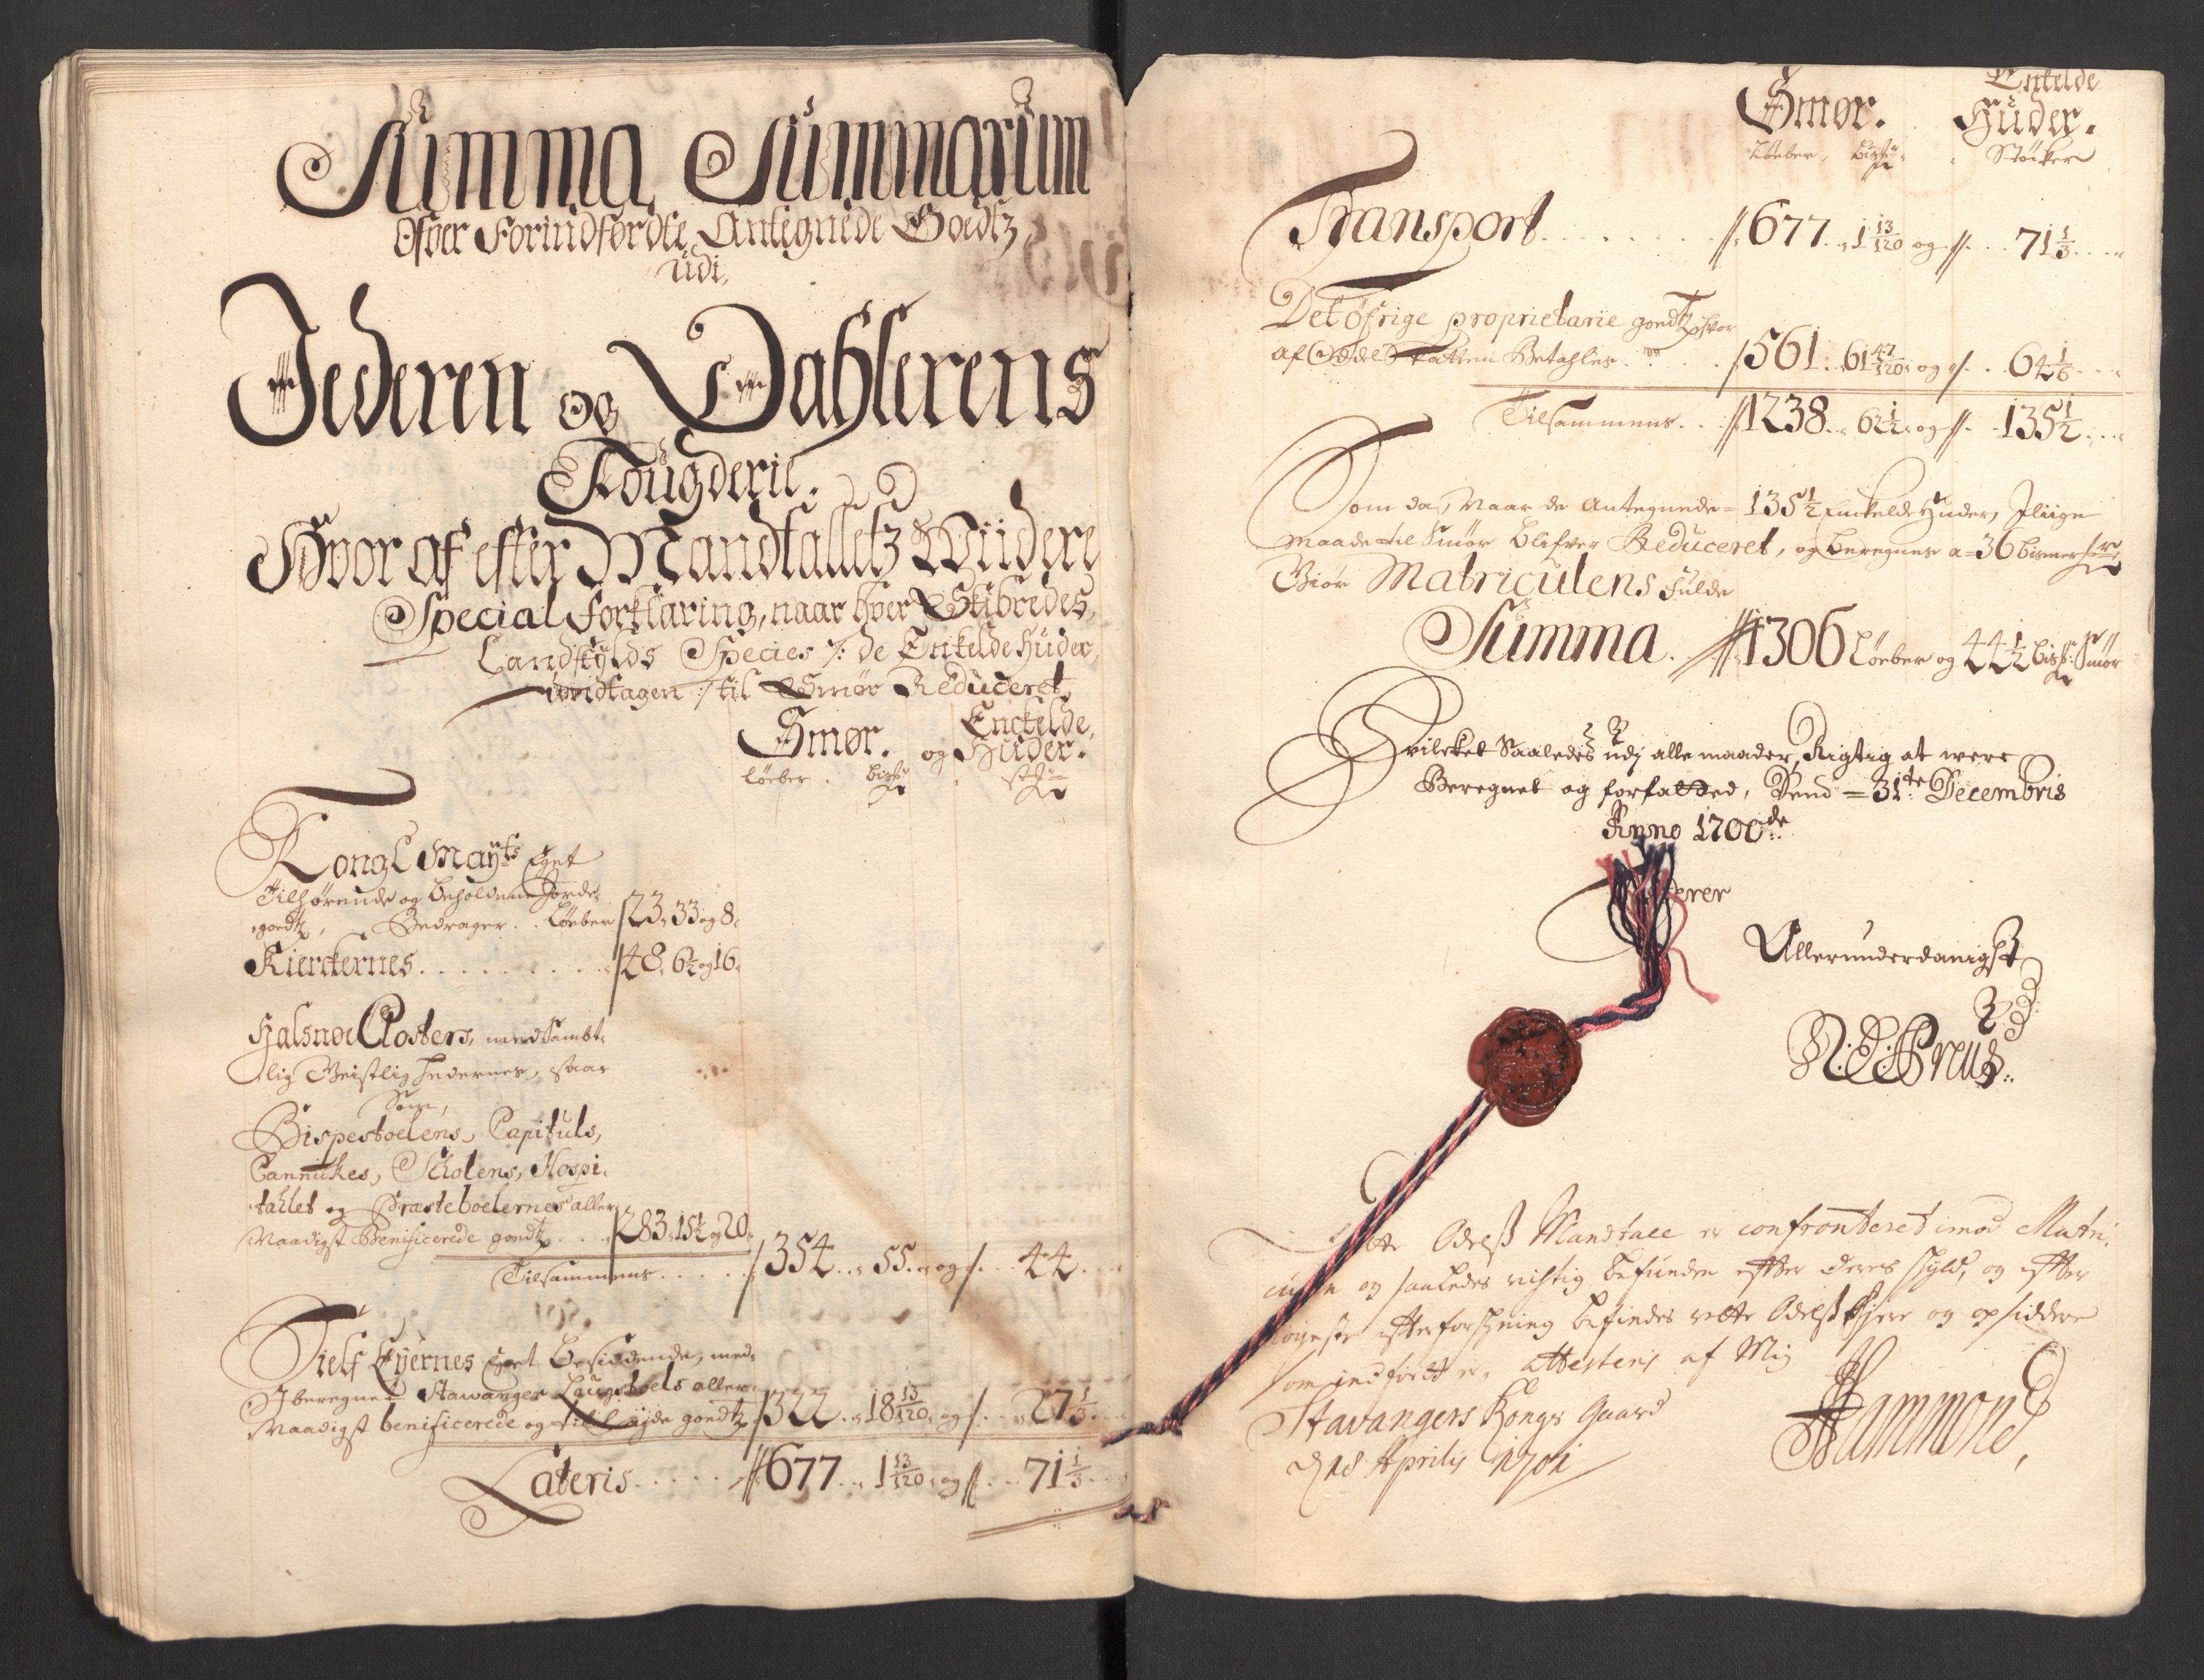 Summa Summarum
Ofver Forindførdte Antegnede Goedtz
udi,
Jederen og Dahlerens
Fougderie.
Hvor af efter Mandtalletz Wiidere
Special forklaring, naar hver Skibredes,
Landskylds Species ⁒ de Enkelde Huder,
undtagen :/ til Smør Reduceret,
Smør. og Enckelde, Huder.
løeber. bis℔ st℔
Kongl Maÿts Eget
Tilhørende og beholdene Jorde-
goedtz, Bedrager. . Løeber 23. 33 og 8.
Kierckernes . . . . . . . . . 48. 6½ og 16.
Halsnøe Closters, med Sambt-
lig Geistlighedernes, saa
Som,
Bispestoelens, Capituls,
Cannikes, Scholens, Hospi-
tahlet og Præsteboelernes aller
Naadigst Benificerede goedtz . . . 283. 15½ og 20.
Tilsammens . . . . . 354 . . 55 . . og . . 44 . . .
Sielf Eÿernes Eget besiddende, med-
Iberegnet Stawanger Laugstoels aller-
Naadigst benificerede og goedtz 322 . . 18 13/120 . og . . . 27⅓ . .
Lateris . . . . . 677 . . 1 13/120 . og . . . 71⅓ . . .
Smør. Enkelde Huder.
Løeber, bis℔ Støcker
Transport . . . . . . . 677 . . 1 13/120 og . . . 71⅓ . . .
Det øfrige proprietarie goedtz hvor
af Odel Skatten Betahles . . . . . 561. 61 47/120 og . . 64 1/6 . . .
Tilsammens . . 1238 . . 62½ og . . 135½ . . .
Som da, Naar de Antegnede = 135½ Enckelde Huder, Iliige
maade til Smør blifver Reduceret, og beregnes a = 36 bismer℔
Giør Matriculens fulde
Summa. 1306 Løeber og 44½ bis℔ Smør
Hvilcket Saaledes udj alle maader, Rigtig at were
Beregnet og forfatted, Dend = 31te Decembris
Anno 1700de
Allerunderdanigst
Odelß Mandtall er confronteret imod Matri-
og saaledes rigtig befunden effter deres skyld, og effter
efterforskning befindes rette Odelß Ejere og opsiddere
som indført er, attesteris af Mig
Stavangers Kongs Gaard
d 18 Aprilis 1701
Hammond,